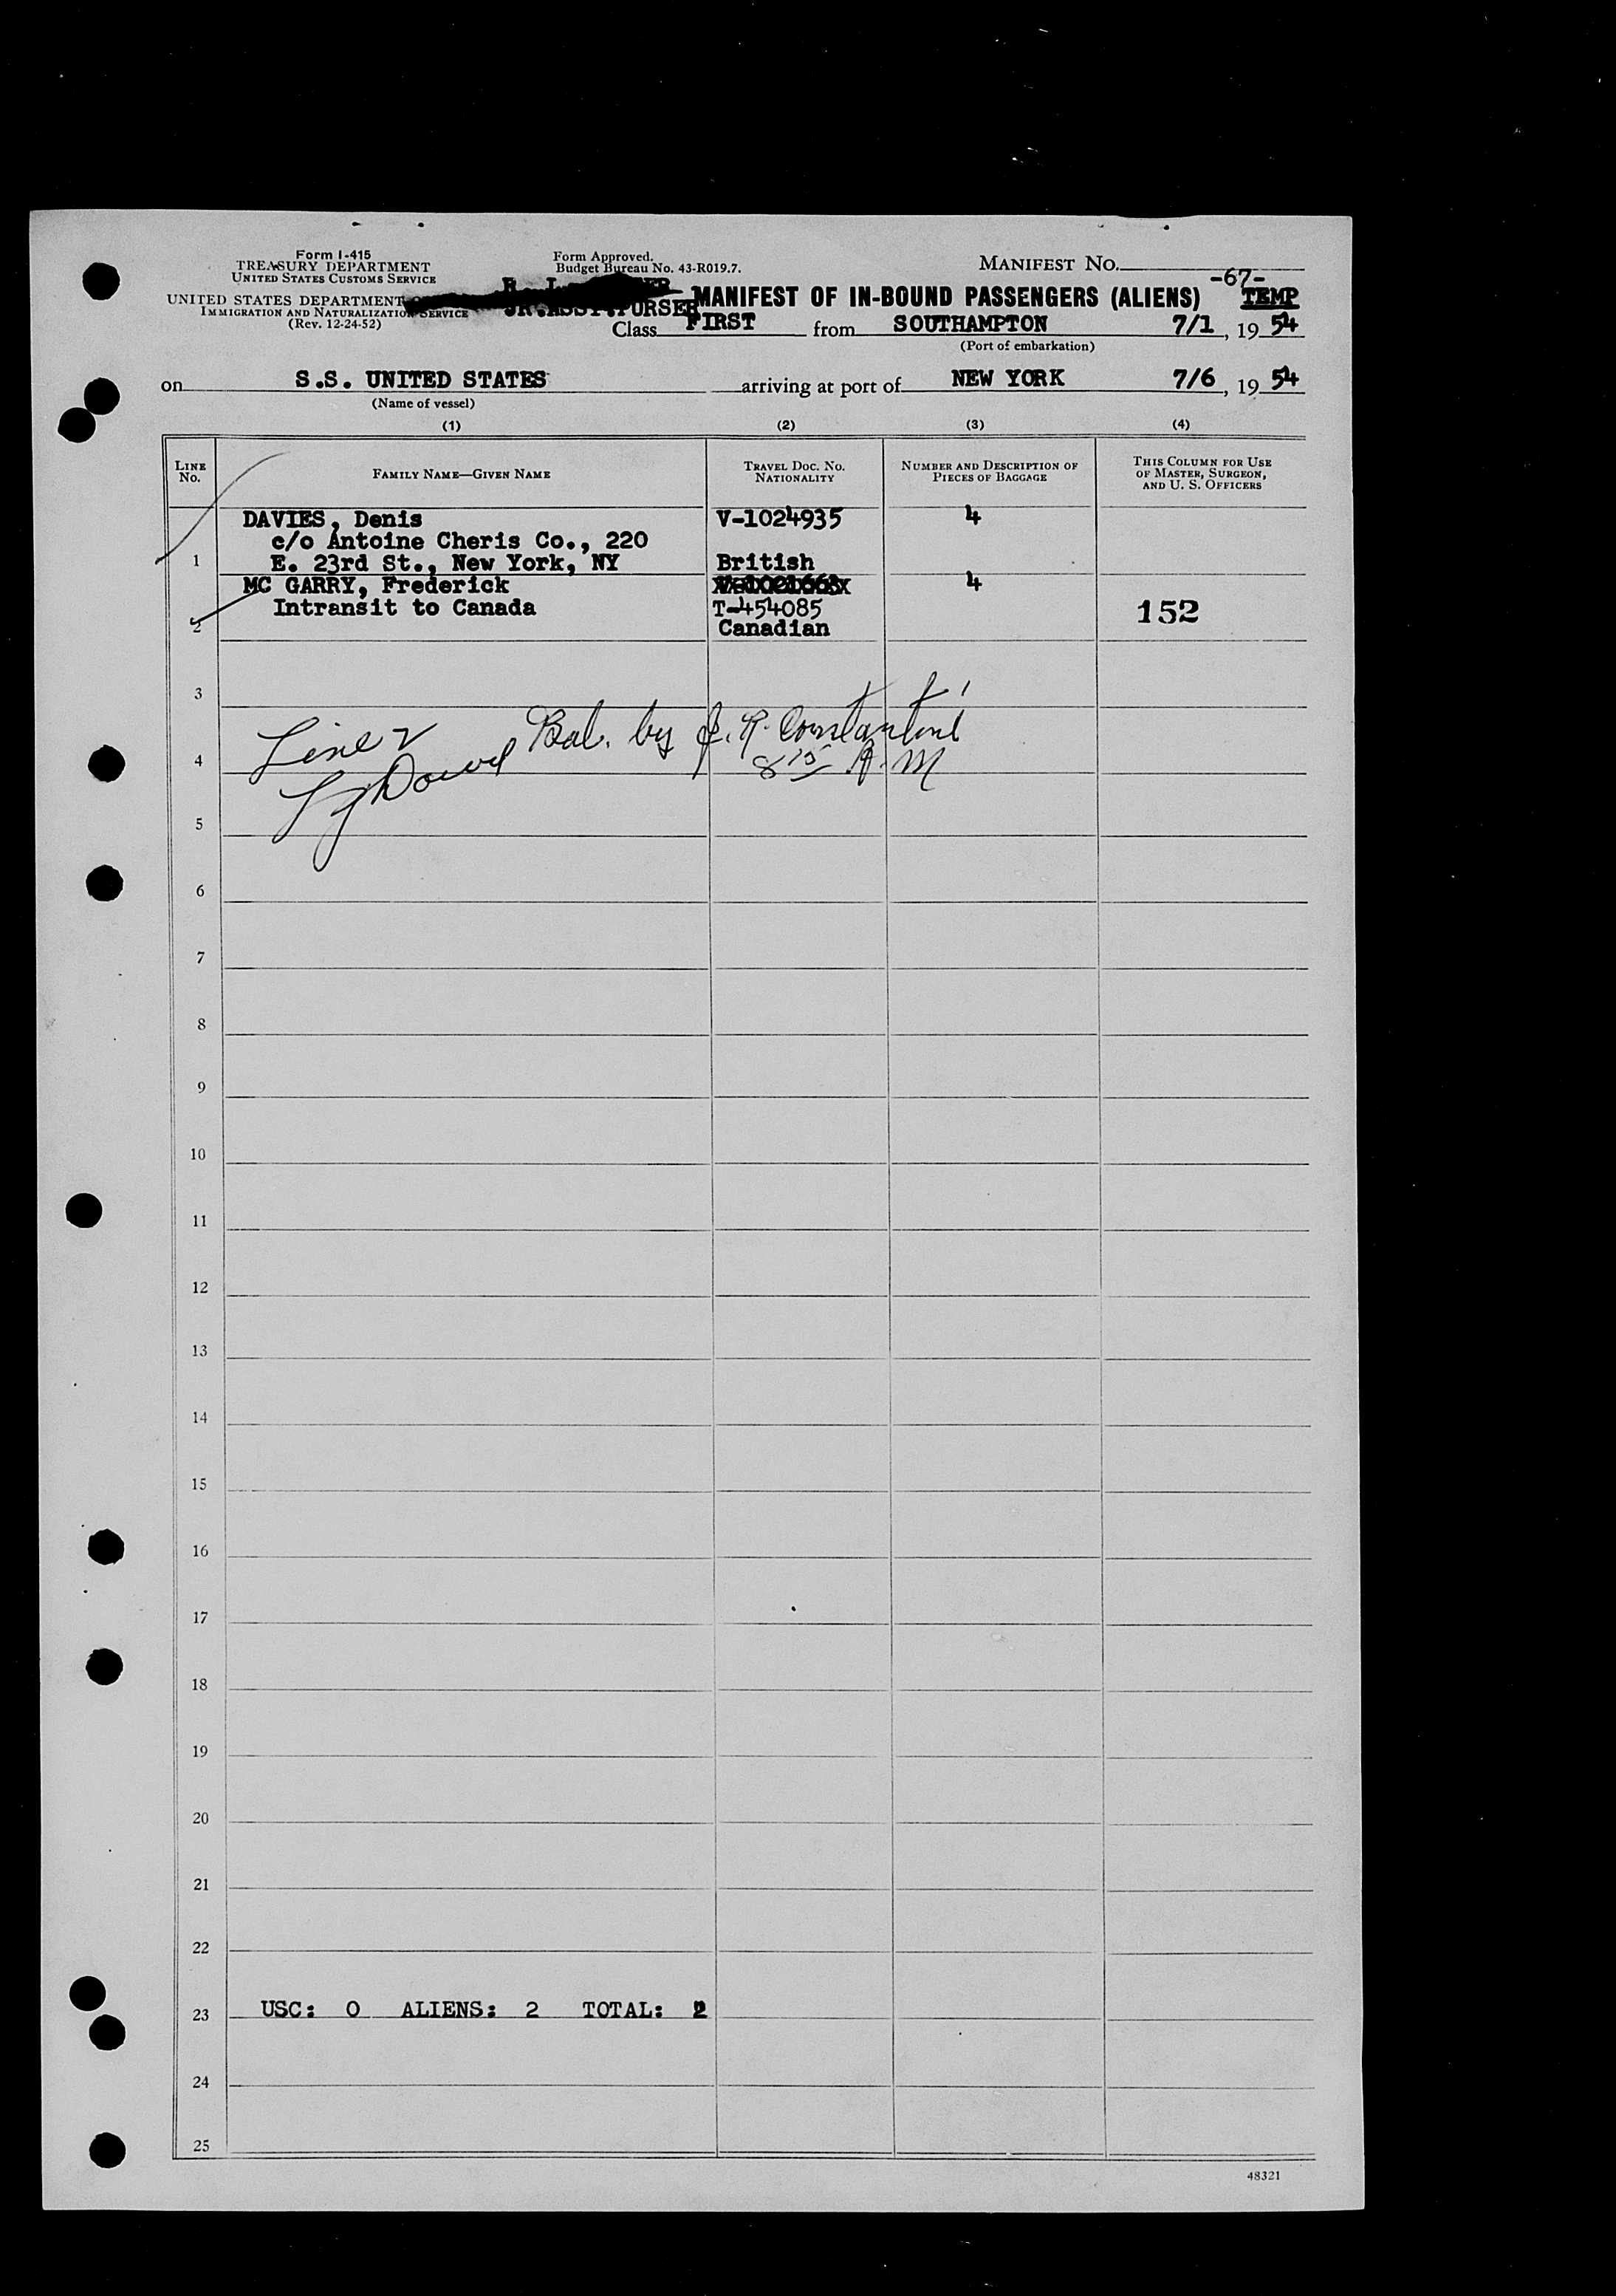 Form I-415
TREASURY DEPARTMENT
UNITED STATES CUSTOMS SERVICE
UNITED STATES DEPARTMENT
IMMIGRATION AND NATURALIZATION SERVICE
(Rev. 12-24-52)
Form Approved.
Budget Bureau No. 43-R019.7.
JR.ASST.PURSER
MANIFEST NO. -67-
MANIFEST OF IN-BOUND PASSENGERS (ALIENS) TEMP
Class FIRST from SOUTHAMPTON 7/1, 19 54
(Port of embarkation)
on S.S. UNITED STATES arriving at port of NEW YORK 7/6, 19 54
(Name of vessel)
(1) (2) (3) (4)
LINE NO. FAMILY NAME—GIVEN NAME TRAVEL DOC. NO. NATIONALITY NUMBER AND DESCRIPTION OF PIECES OF BAGGAGE THIS COLUMN FOR USE OF MASTER, SURGEON, AND U. S. OFFICERS
DAVIES, Denis V-1024935 4
c/o Antoine Cheris Co., 220
1 E. 23rd St., New York, NY British
MC GARRY, Frederick 4
Intransit to Canada T-454085 152
2 Canadian
3
Line 2 Bal. by J. R. Constantine
4 8 15 A.M
5
6
7
8
9
10
11
12
13
14
15
16
17
18
19
20
21
22
23 USC: 0 ALIENS: 2 TOTAL: 2
24
25
48321